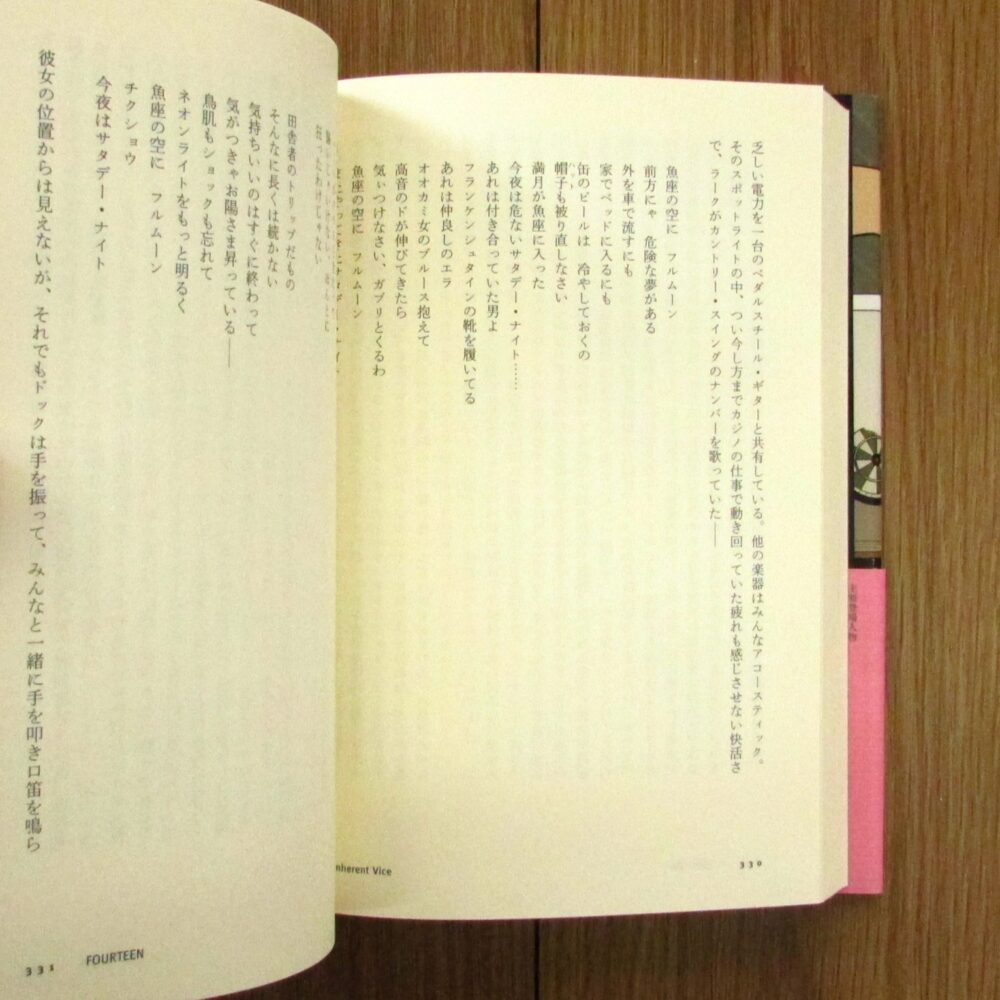 乏しい電力を一台のペダルスチール・ギターと共有している。他の楽器はみんなアコースティック。
そのスポットライトの中、つい今し方までカジノの仕事で動き回っていた疲れも感じさせない快活さ
で、ラークがカントリー・スイングのナンバーを歌っていた――
魚座の空に　フルムーン
前方にゃ　危険な夢がある
外を車で流すにも
家でベッドに入るにも
缶のビールは　冷やしておくの
帽子も被り直しなさい
満月が魚座に入った
今夜は危ないサタデー・ナイト……
あれは付き合っていた男よ
フランケンシュタインの靴を履いてる
あれは仲良しのエラ
オオカミ女のブルース抱えて
高音のドが伸びてきたら
気ぃつけなさい、ガブリとくるわ
魚座の空に　フルムーン
nherent Vice
330
田舎者のトリップだもの
そんなに長くは続かない
気持ちいいのはすぐに終わって
気がつきゃお陽さま昇っている――
鳥肌もショックも忘れて
ネオンライトをもっと明るく
魚座の空に　フルムーン
チクショウ
今夜はサタデー・ナイト
彼女の位置からは見えないが、それでもドックは手を振って、みんなと一緒に手を叩き口笛を鳴ら
331
FOURTEEN